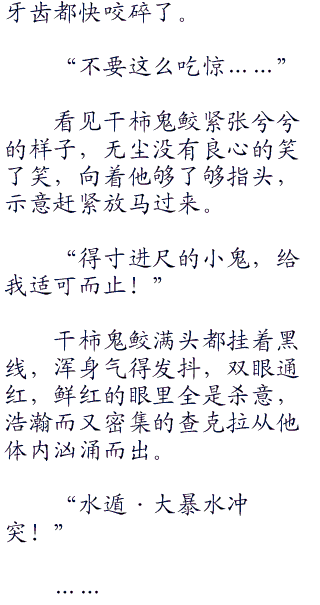 牙齿都快咬碎了。
“不要这么吃惊……”
看见干柿鬼鲛紧张兮兮
的样子，无尘没有良心的笑
了笑，向着他够了够指头，
示意赶紧放马过来。
“得寸进尺的小鬼，给
我适可而止！”
干柿鬼鲛满头都挂着黑
线，浑身气得发抖，双眼通
红，鲜红的眼里全是杀意，
浩瀚而又密集的查克拉从他
体内汹涌而出。
“水遁·大暴水冲
突！”
……